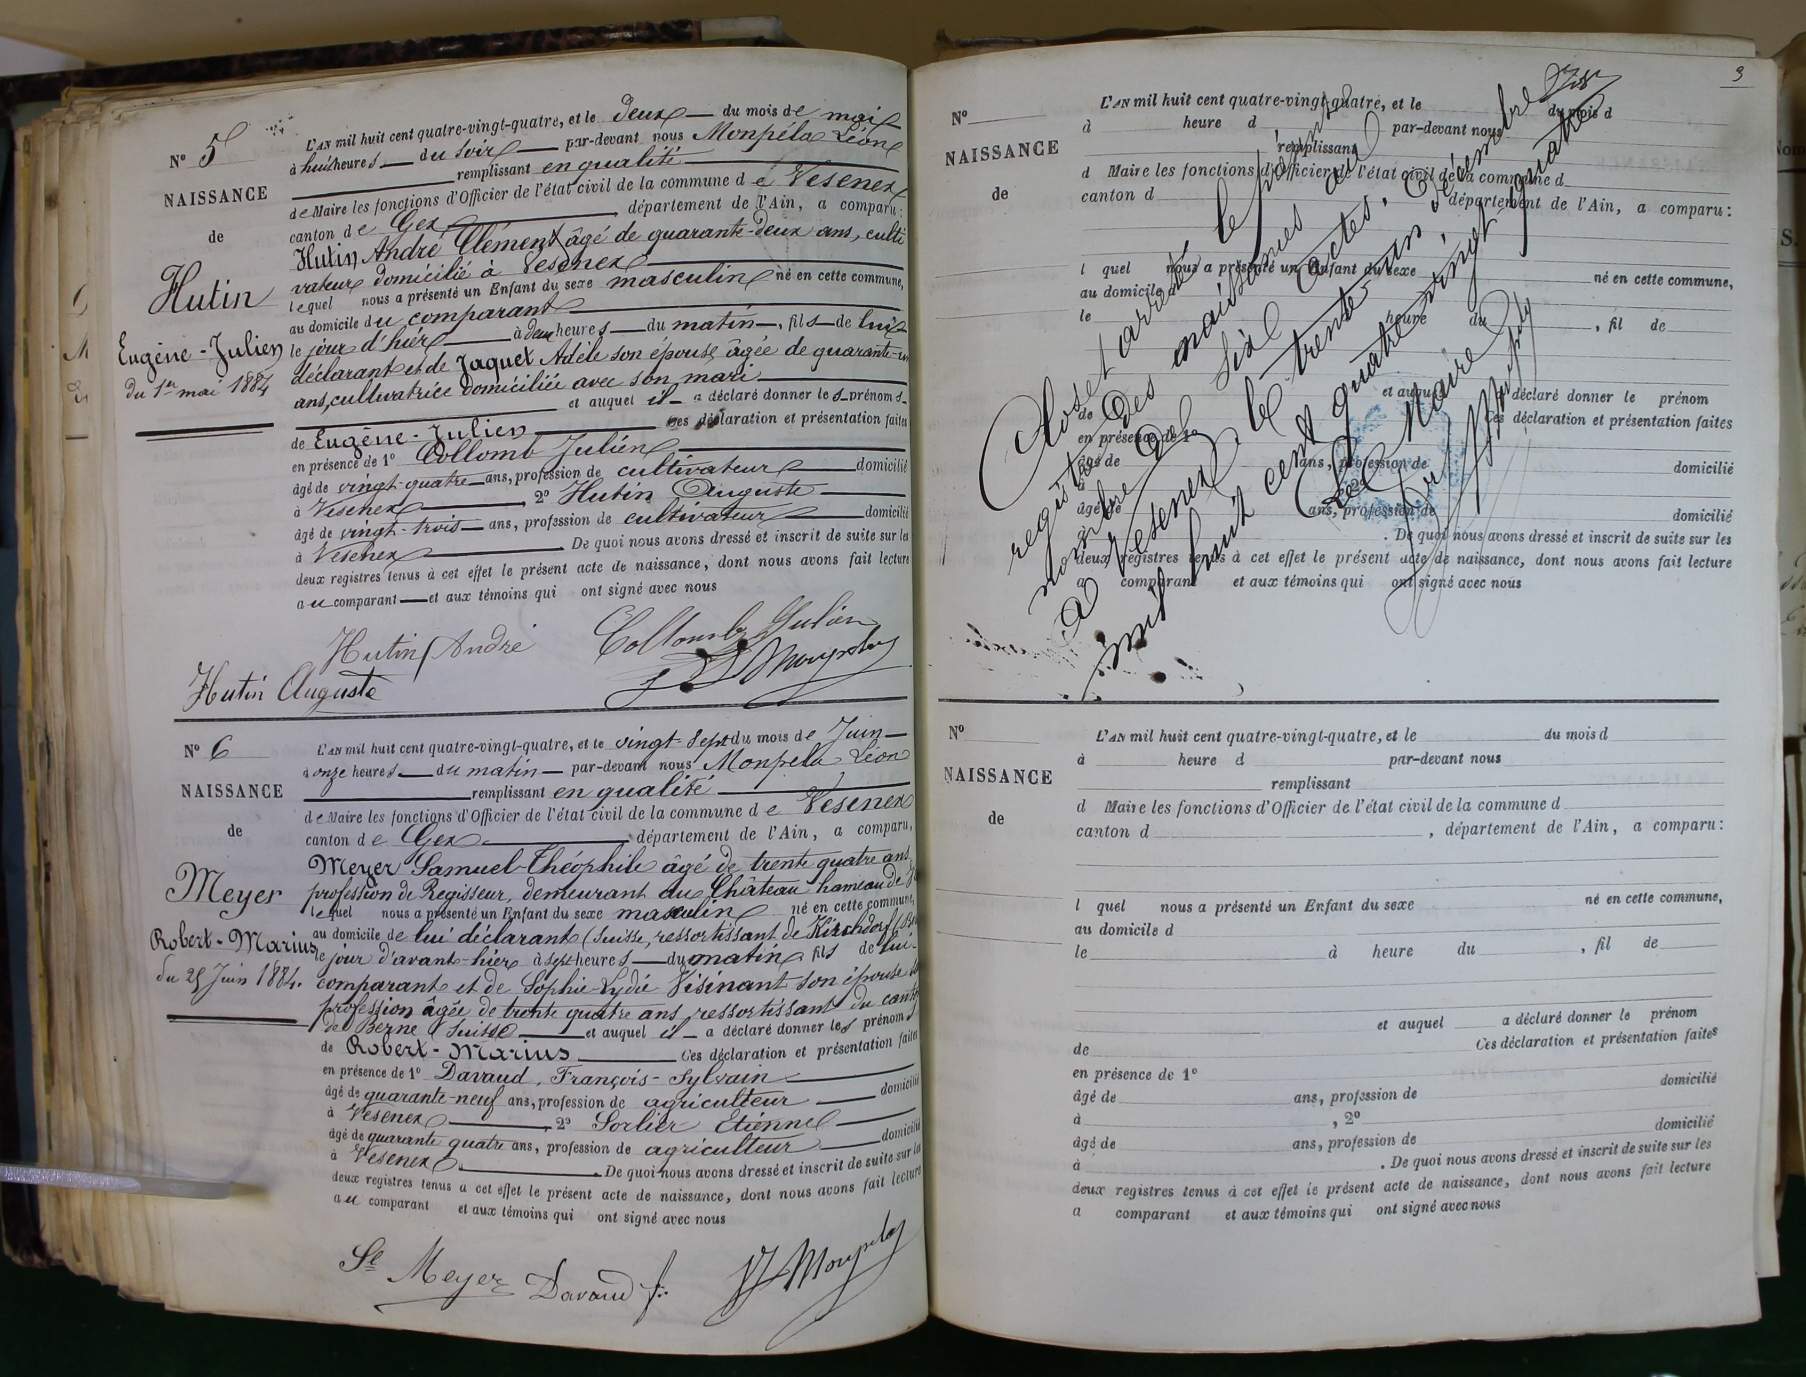 N° 5
NAISSANCE
de
Hutin
Eugène-Julien
du 1er mai 1884
L'AN mil huit cent quatre-vingt-quatre, et le deux du mois de mai
à huit heures du soir par-devant nous Monpéla Léon
remplissant en qualité
de Maire les fonctions d'Officier de l'état civil de la commune de Vesenex
canton de Gex, département de l'Ain, a comparu:
Hutin André Clément âgé de quarante-deux ans, culti
vateur domicilié à Vesenex
lequel nous a présenté un Enfant du sexe masculin né en cette commune,
au domicile du comparant
le jour d'hier à deux heures du matin, fils de lui
déclarant et de Jaquet Adèle son épouse âgée de quarante-un
ans, cultivatrice domiciliée avec son mari
et auquel il a déclaré donner les prénoms
de Eugène-Julien Ces déclaration et présentation faites
en présence de 1° Collomb Julien
âgé de vingt-quatre ans, profession de cultivateur domicilié
à Vesenex, 2° Hutin Auguste
âgé de vingt-trois ans, profession de cultivateur domicilié
à Vesenex. De quoi nous avons dressé et inscrit de suite sur les
deux registres tenus à cet effet le présent acte de naissance, dont nous avons fait lecture
au comparant et aux témoins qui ont signé avec nous
Hutin André Collomb Julien
Hutin Auguste
N° 6
NAISSANCE
de
Meyer
Robert-Marius
du 25 Juin 1884.
L'AN mil huit cent quatre-vingt-quatre, et le vingt-sept du mois de Juin
à onze heures du matin par-devant nous Monpela Léon
remplissant en qualité
de Maire les fonctions d'Officier de l'état civil de la commune de Vesenex
canton de Gex, département de l'Ain, a comparu,
Meyer Samuel-Théophile âgé de trente quatre ans
profession de Regisseur, demeurant au Château hameau de
lequel nous a présenté un Enfant du sexe masculin né en cette commune,
au domicile de lui déclarant (Suisse, ressortissant de Kirchdorf
le jour d'avant-hier à sept heures du matin, fils de lui-
comparant et de Sophie-Lydie Visinant son épouse
profession âgée de trente quatre ans, ressortissant du canton
de Berne Suisse et auquel il a déclaré donner les prénoms
de Robert-Marius Ces déclaration et présentation faites
en présence de 1° Davaud, François-Sylvain
âgé de quarante-neuf ans, profession de agriculteur domicilié
à Vesenex, 2° Sorlier Etienne
âgé de quarante quatre ans, profession de agriculteur domicilié
à Vesenex. De quoi nous avons dressé et inscrit de suite sur les
deux registres tenus à cet effet le présent acte de naissance, dont nous avons fait lecture
au comparant et aux témoins qui ont signé avec nous
Meyer Davaud f.
3
N°
NAISSANCE
de
L'AN mil huit cent quatre-vingt-quatre, et le du mois d
à heure d par-devant nous
remplissant
d Maire les fonctions d'Officier de l'état civil de la commune d
canton d département de l'Ain, a comparu:
l quel nous a présenté un Enfant du sexe né en cette commune,
au domicile d
le heure du , fil de
et auquel a déclaré donner le prénom
de Ces déclaration et présentation faites
en présence de 1°
âgé de ans, profession de domicilié
à 2°
âgé de ans, profession de domicilié
. De quoi nous avons dressé et inscrit de suite sur les
deux registres tenus à cet effet le présent acte de naissance, dont nous avons fait lecture
a comparant et aux témoins qui ont signé avec nous
Clos et arrêté le présent
registre des naissances au
nombre de six actes.
à Vesenex, le trente-un Décembre
mil huit cent quatre vingt quatre
Le Maire
N°
NAISSANCE
de
L'AN mil huit cent quatre-vingt-quatre, et le du mois d
à heure d par-devant nous
remplissant
d Maire les fonctions d'Officier de l'état civil de la commune d
canton d , département de l'Ain, a comparu:
l quel nous a présenté un Enfant du sexe né en cette commune,
au domicile d
le à heure du , fil de
et auquel a déclaré donner le prénom
de Ces déclaration et présentation faites
en présence de 1°
âgé de ans, profession de domicilié
à , 2°
âgé de ans, profession de domicilié
à . De quoi nous avons dressé et inscrit de suite sur les
deux registres tenus à cet effet le présent acte de naissance, dont nous avons fait lecture
a comparant et aux témoins qui ont signé avec nous